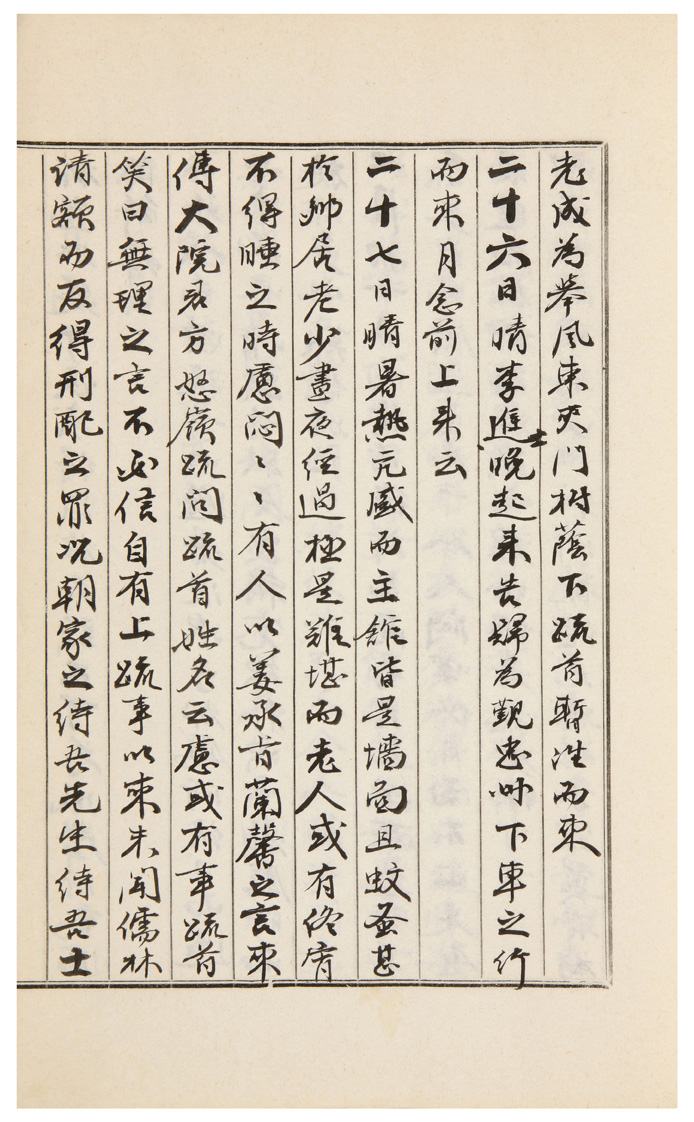 老成爲挙風東夾門樹蔭下疏首暫泄而來
二十六日晴李進士晩起來告歸爲覲忠卿下車之行
而來月念前上來云
二十七日晴暑熱亢盛而主館皆是墻面且蚊蚤甚
於帥居老少晝夜經過極是難堪而老人或有終宵
不得睡之時慮悶〻〻有人以姜承旨蘭馨之言來
傳大院君方怒嶺疏問疏首姓名云慮或有事疏首
笑曰無理之言不必信自有上疏事以來未聞儒林
請額而反得刑配之罪况朝家之待吾先生待吾士